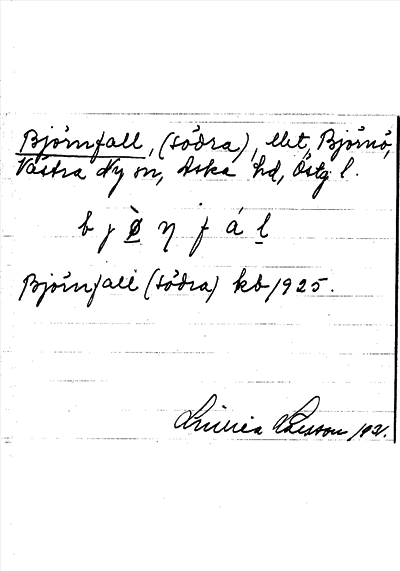 Björnfall, (södra), llet, Björnö,
Västra Ny sn, Aska hd, Östg l.
b j ø̀ ŋ f á l
Björnfall (södra) kb 1925.
Larsson